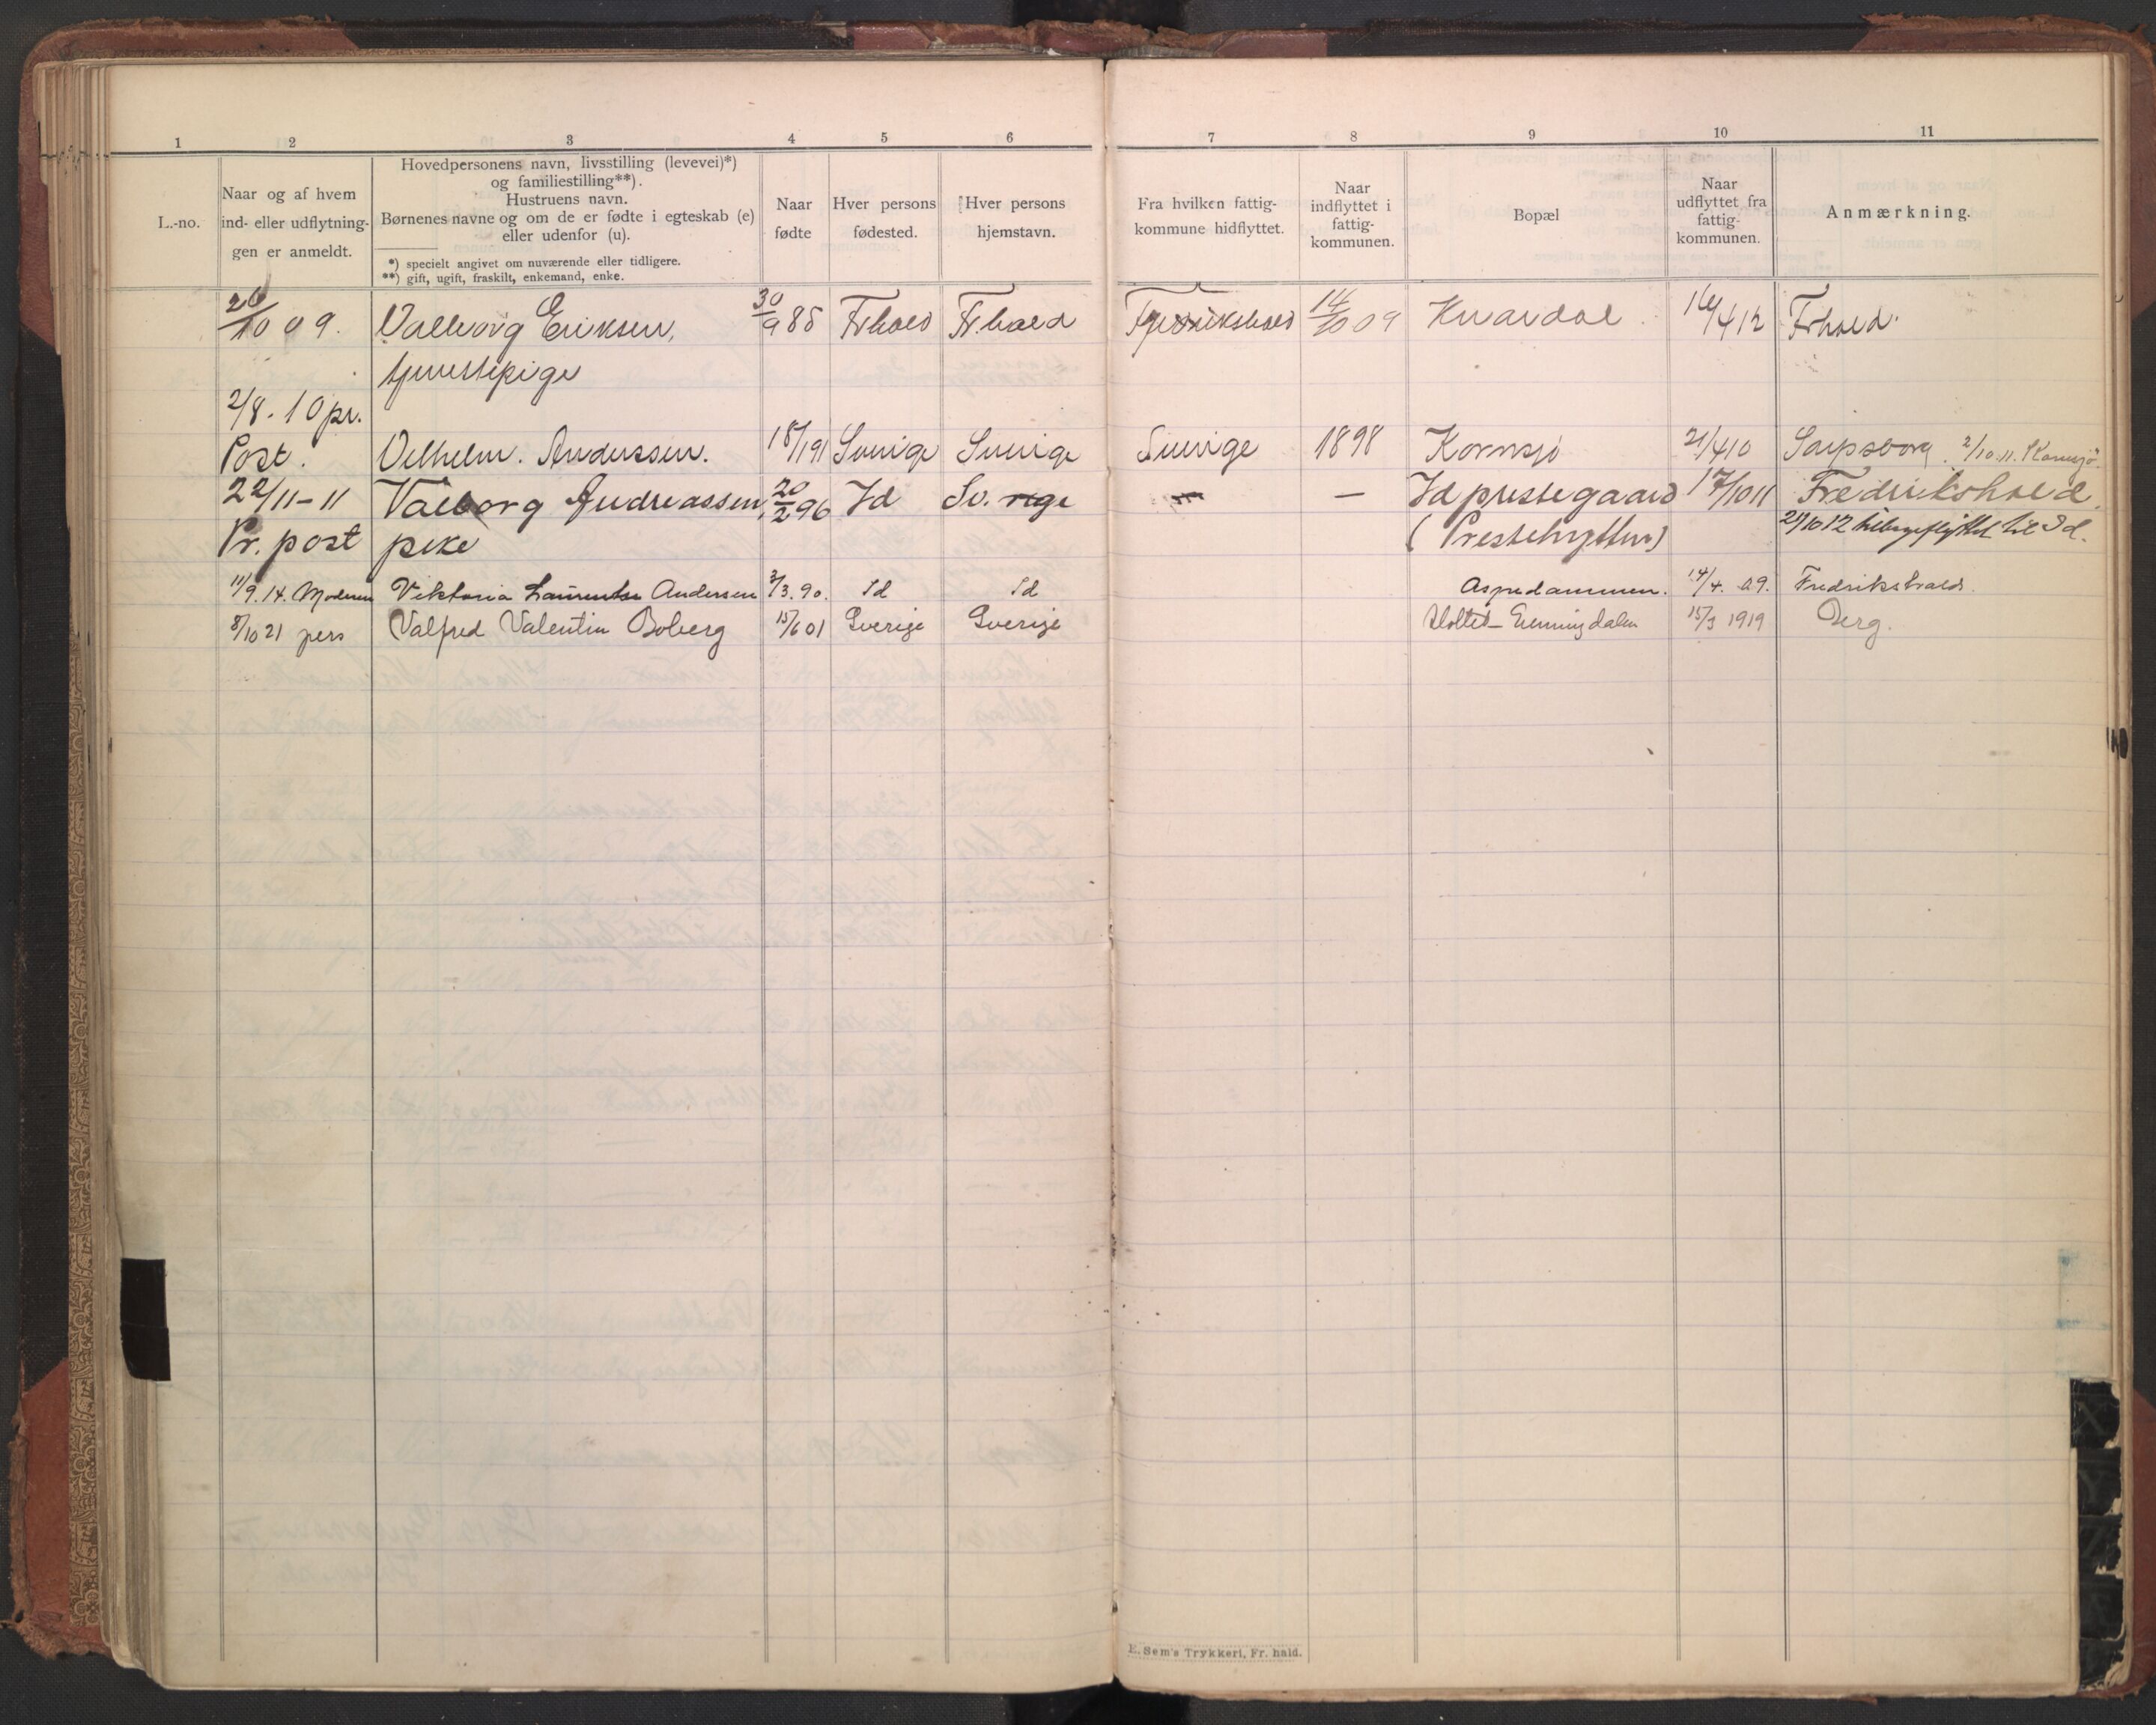 1 2 3 4 5 6 7 8 9 10 11
L.-no.
Naar og af hvem
ind- eller udflytnin-
gen er anmeldt.
Hovedpersonens navn, livsstilling (levevei)*)
og familiestilling**).
Hustruens navn.
Børnenes navne og om de er fødte i egteskab (e)
eller udenfor (u).
*) specielt angivet om nuværende eller tidligere.
**) gift, ugift, fraskilt, enkemand, enke.
Naar
fødte
Hver persons
fødested.
Hver persons
hjemstavn.
Fra hvilken fattig-
kommune hidflyttet.
Naar
indflyttet i
fattig-
kommunen.
Bopæl
Naar
udflyttet fra
fattig-
kommunen.
Anmærkning.
20/10 09. Valborg Eriksen, 30/9 85 Frhald Fr.hald Fredrikshald 14/10 09 Knardal 16/4 12 Frhald.
tjenestepige
2/8. 10 pr.
Post. Vilhelm. Anderssen. 18/1 91 Sverige Sverige Sverige 1898 Kornsjø 21/4 10 Sarpsborg. 2/10.11. Kornsjö.
22/11-11 Valborg Andreassen, 20/2 96 Id Sv. rige — — Id prestegaard 17/10 11 Fredrikshald.
Pr. post pike (Prestehytten) 21/10 12 tilbageflyttet til Id.
11/9. 14. Moderen Viktoria Laurentse Andersen 2/3. 90. Id Id Aspedammen. 14/4. 09. Fredrikshald.
8/10 21 pers Valfred Valentin Boberg 15/6 01 Sverige Sverige Holtet - Enningdalen 15/3 1919 Berg.
E. Sem's Trykkeri, Fr. hald.